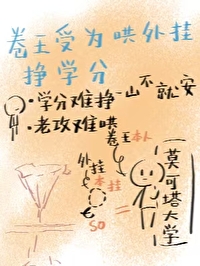 卷王受为哄外挂
挣学分
·学分难挣一山不就安
·老攻难哄
卷王本人
外挂
本挂
=
SD
莫可塔大学